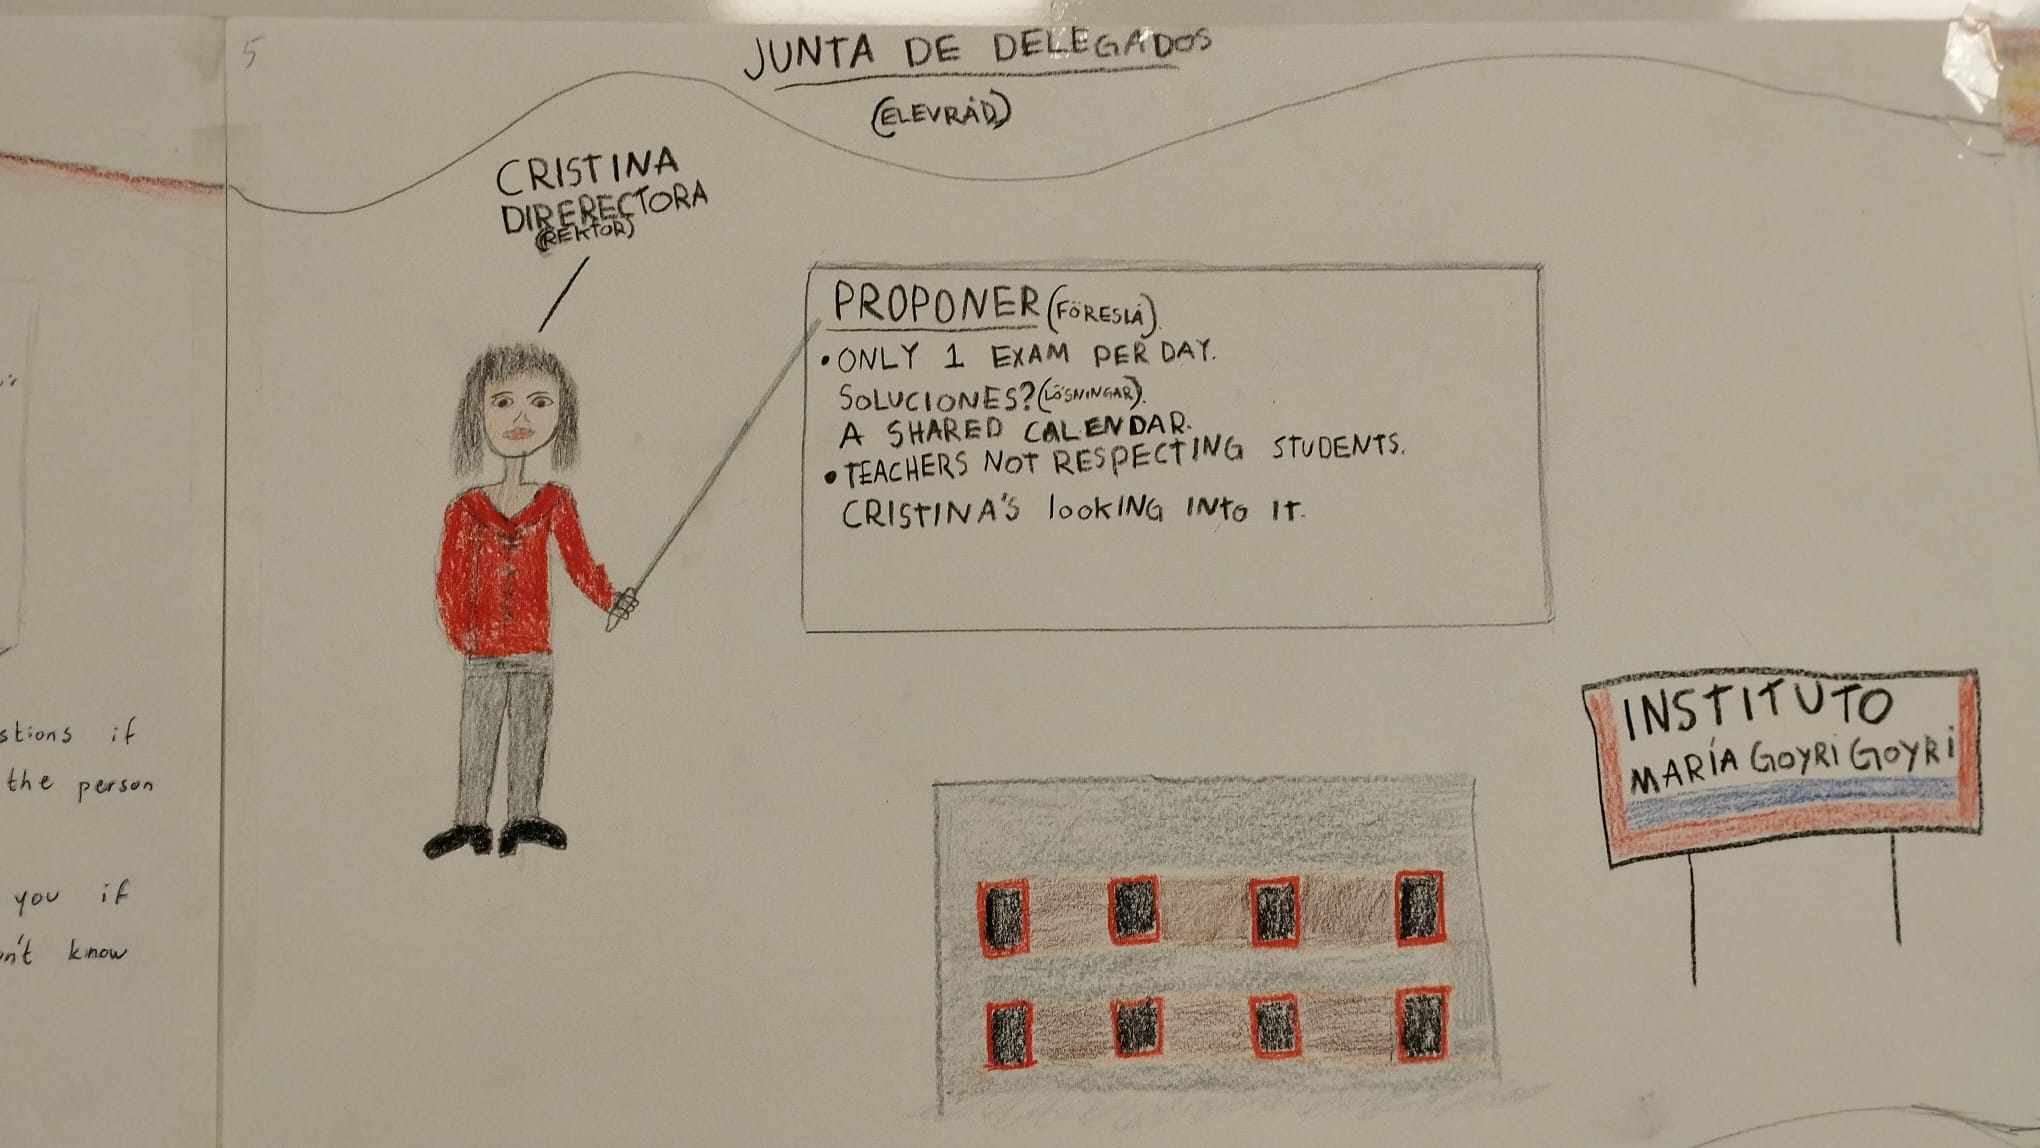 5
JUNTA DE DELEGADOS
(ELEVRÅD)
CRISTINA
DIRERECTORA
(REKTOR)
PROPONER (FÖRESLÅ).
• ONLY 1 EXAM PER DAY.
SOLUCIONES? (LÖSNINGAR).
A SHARED CALENDAR.
• TEACHERS NOT RESPECTING STUDENTS.
CRISTINA'S looKING INTO IT.
INSTITUTO
MARÍA GOYRI GOYRI
stions if
the person
you if
n't know